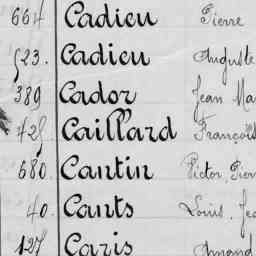 664 Cadieu Pierre
523. Cadieu Auguste
389 Cador Jean Ma
428. Caillard François
680. Cantin Victor Pier
40. Cants Louis, Je
127 Caris Amand